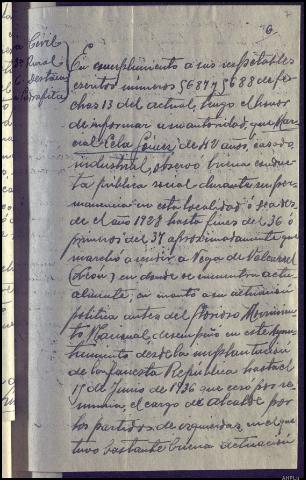 6
Civil
Rural
En cumplimiento a sus respetables
escritos números 5687 y 5688 de fe
chas 13 del actual, tengo el honor
de informar a su autoridad, que Mar
cial Cela Gomez de 42 años, casado
industrial, observó buena conduc
ta pública social durante su per
manencia en esta localidad ó sea des
de el año 1928 hasta fines del 36 ó
primeros del 37 aproximadamente que
marchó a residir a Vega de Valcarcel
(León) en donde se encuentra actu
almente; en cuanto a su actuación
politica antes del Glorioso Movimien
to Nacional, desempeñó en este Ayun
tamiento desde la implantación
de la funesta República hasta el
15 de Junio de 1936 que cesó por re
nuncia, el cargo de Alcalde por
los partidos de izquierdas, en el que
tuvo bastante buena actuación